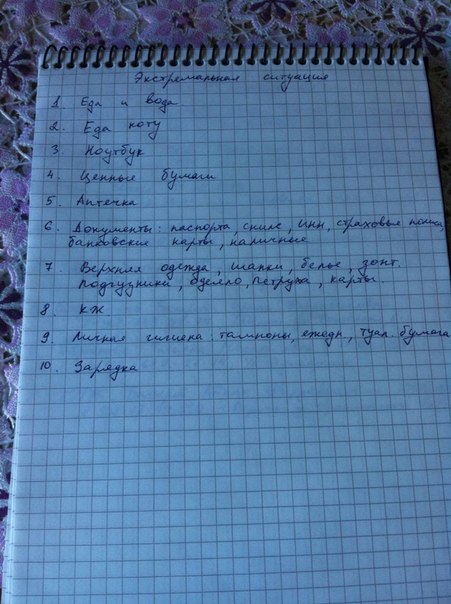 Экстремальная ситуация
1. Еда и вода
2. Еда коту
3. Ноутбук
4. Ценные бумаги
5. Аптечка
6. Документы: паспорта, снилс, инн, страховые полисы,
банковские карты, наличные
7. Верхняя одежда, шапки, белье, зонт.
Подгузники, одеяло, Петруха, карты.
8. КЖ
9. Личная гигиена: тампоны, ежедн., туал. бумага
10. Зарядка